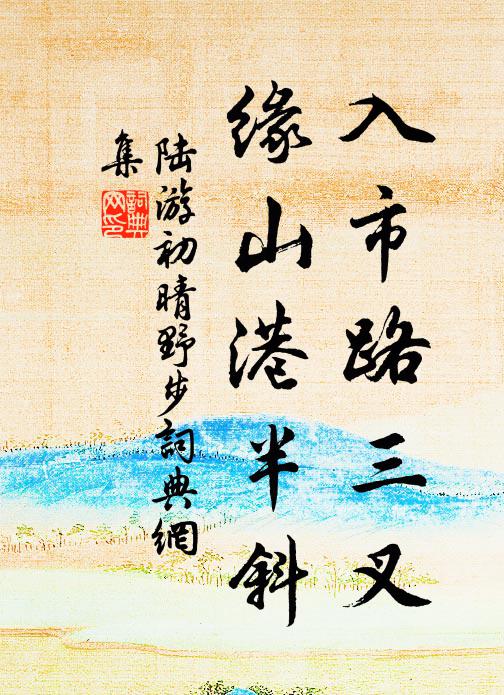 入市路三叉
缘山港半斜
陆游初晴野步词典網
集
詞典
网印